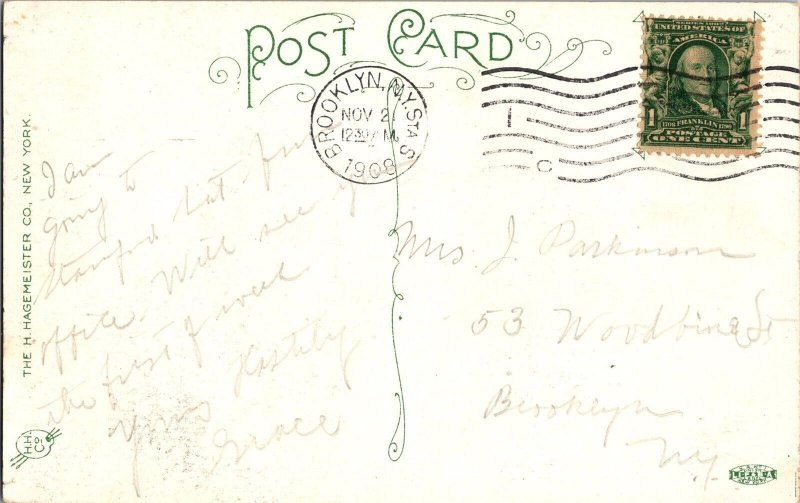 POST CARD
BROOKLYN, N.Y. STA S
NOV 2
1230 M
1908
C
SERIES 1902
UNITED STATES OF
AMERICA
1 1
1706 FRANKLIN 1790
POSTAGE
ONE CENT
THE H. HAGEMEISTER CO., NEW YORK.
H.H. Co.
I am
going to
Stamford Sat. from
office. Will see you
the first of week
Yours Hastily
Grace
Mrs J. Parkinson
53 Woodbine St
Brooklyn
NY